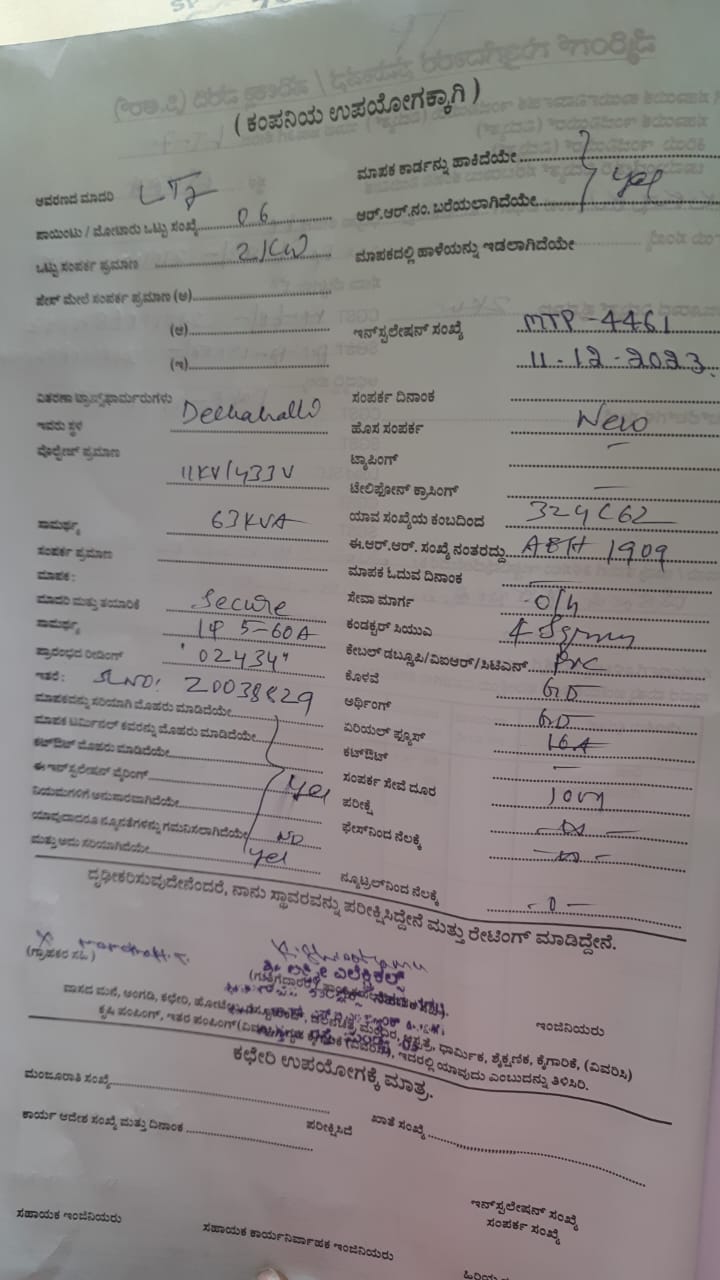 ( ಕಂಪನಿಯ ಉಪಯೋಗಕ್ಕಾಗಿ )
ಆವರಣದ ಮಾದರಿ LT2
ಪಾಯಿಂಟು / ಮೋಟಾರು ಒಟ್ಟು ಸಂಖ್ಯೆ 06
ಒಟ್ಟು ಸಂಪರ್ಕ ಪ್ರಮಾಣ 2KW
ಪೇಸ್ ಮೇಲೆ ಸಂಪರ್ಕ ಪ್ರಮಾಣ (ಅ)
(ಆ)
(ಇ)
ವಿತರಣಾ ಟ್ರಾನ್ಸ್‌ಫಾರ್ಮರುಗಳು
ಇವರು ಸ್ಥಳ
ವೊಲ್ಟೇಜ್ ಪ್ರಮಾಣ 11KV/433V
ಸಾಮರ್ಥ್ಯ 63KVA
ಸಂಪರ್ಕ ಪ್ರಮಾಣ
ಮಾಪಕ :
ಮಾದರಿ ಮತ್ತು ತಯಾರಿಕೆ Secure
ಸಾಮರ್ಥ್ಯ 1φ 5-60A
ಪ್ರಾರಂಭದ ರೀಡಿಂಗ್ "02434"
ಇತರೆ : SLNO: 20038829
ಮಾಪಕವನ್ನು ಸರಿಯಾಗಿ ಮೊಹರು ಮಾಡಿದೆಯೇ
ಮಾಪಕ ಟರ್ಮಿನಲ್ ಕವರನ್ನು ಮೊಹರು ಮಾಡಿದೆಯೇ
ಕಟ್‌ಔಟ್ ಮೊಹರು ಮಾಡಿದೆಯೇ
ಈ ಇನ್‌ಸ್ಟಲೇಷನ್ ವೈರಿಂಗ್ yes
ನಿಯಮಗಳಿಗೆ ಅನುಸಾರವಾಗಿದೆಯೇ
ಯಾವುದಾದರೂ ನ್ಯೂನತೆಗಳನ್ನು ಗಮನಿಸಲಾಗಿದೆಯೇ NO
ಮತ್ತು ಅದು ಸರಿಯಾಗಿದೆಯೇ yes
ಮಾಪಕ ಕಾರ್ಡನ್ನು ಹಾಕಿದೆಯೇ
ಆರ್.ಆರ್.ನಂ. ಬರೆಯಲಾಗಿದೆಯೇ yes
ಮಾಪಕದಲ್ಲಿ ಹಾಳೆಯನ್ನು ಇಡಲಾಗಿದೆಯೇ
ಇನ್‌ಸ್ಟಲೇಷನ್ ಸಂಖ್ಯೆ MTP-4461
11-12-2023
ಸಂಪರ್ಕ ದಿನಾಂಕ
ಹೊಸ ಸಂಪರ್ಕ New
ಟ್ಯಾಪಿಂಗ್ —
ಟೆಲಿಫೋನ್ ಕ್ರಾಸಿಂಗ್ —
ಯಾವ ಸಂಖ್ಯೆಯ ಕಂಬದಿಂದ
ಈ.ಆರ್.ಆರ್. ಸಂಖ್ಯೆ ನಂತರದ್ದು ABH 1909
ಮಾಪಕ ಓದುವ ದಿನಾಂಕ —
ಸೇವಾ ಮಾರ್ಗ O/H
ಕಂಡಕ್ಟರ್ ಸಿಯುಎ 4 Sqmm
ಕೇಬಲ್ ಡಬ್ಲೂಪಿ/ವಿಐಆರ್/ಸಿಟಿಎನ್ PVC
ಕೊಳವೆ GD
ಅರ್ಥಿಂಗ್ GD
ಏರಿಯಲ್ ಫ್ಯೂಸ್ 16A
ಕಟ್‌ಔಟ್ —
ಸಂಪರ್ಕ ಸೇವೆ ದೂರ 10m
ಪರೀಕ್ಷೆ
ಫೇಸ್‌ನಿಂದ ನೆಲಕ್ಕೆ
ನ್ಯೂಟ್ರಲ್‌ನಿಂದ ನೆಲಕ್ಕೆ -0-
ದೃಢೀಕರಿಸುವುದೇನೆಂದರೆ, ನಾನು ಸ್ಥಾವರವನ್ನು ಪರೀಕ್ಷಿಸಿದ್ದೇನೆ ಮತ್ತು ರೇಟಿಂಗ್ ಮಾಡಿದ್ದೇನೆ.
(ಗ್ರಾಹಕರ ಸಹಿ)
ಇಂಜಿನಿಯರು
ವಾಸದ ಮನೆ, ಅಂಗಡಿ, ಕಛೇರಿ, ಆಸ್ಪತ್ರೆ, ಧಾರ್ಮಿಕ, ಶೈಕ್ಷಣಿಕ, ಕೈಗಾರಿಕೆ, (ವಿವರಿಸಿ)
ಕೃಷಿ ಪಂಪಿಂಗ್, ಇತರ ಪಂಪಿಂಗ್ ಇದರಲ್ಲಿ ಯಾವುದು ಎಂಬುದನ್ನು ತಿಳಿಸಿರಿ.
ಕಛೇರಿ ಉಪಯೋಗಕ್ಕೆ ಮಾತ್ರ.
ಮಂಜೂರಾತಿ ಸಂಖ್ಯೆ
ಖಾತೆ ಸಂಖ್ಯೆ
ಕಾರ್ಯ ಆದೇಶ ಸಂಖ್ಯೆ ಮತ್ತು ದಿನಾಂಕ
ಪರೀಕ್ಷಿಸಿದೆ
ಇನ್‌ಸ್ಟಲೇಷನ್ ಸಂಖ್ಯೆ
ಸಂಪರ್ಕ ಸಂಖ್ಯೆ
ಸಹಾಯಕ ಇಂಜಿನಿಯರು
ಸಹಾಯಕ ಕಾರ್ಯನಿರ್ವಾಹಕ ಇಂಜಿನಿಯರು